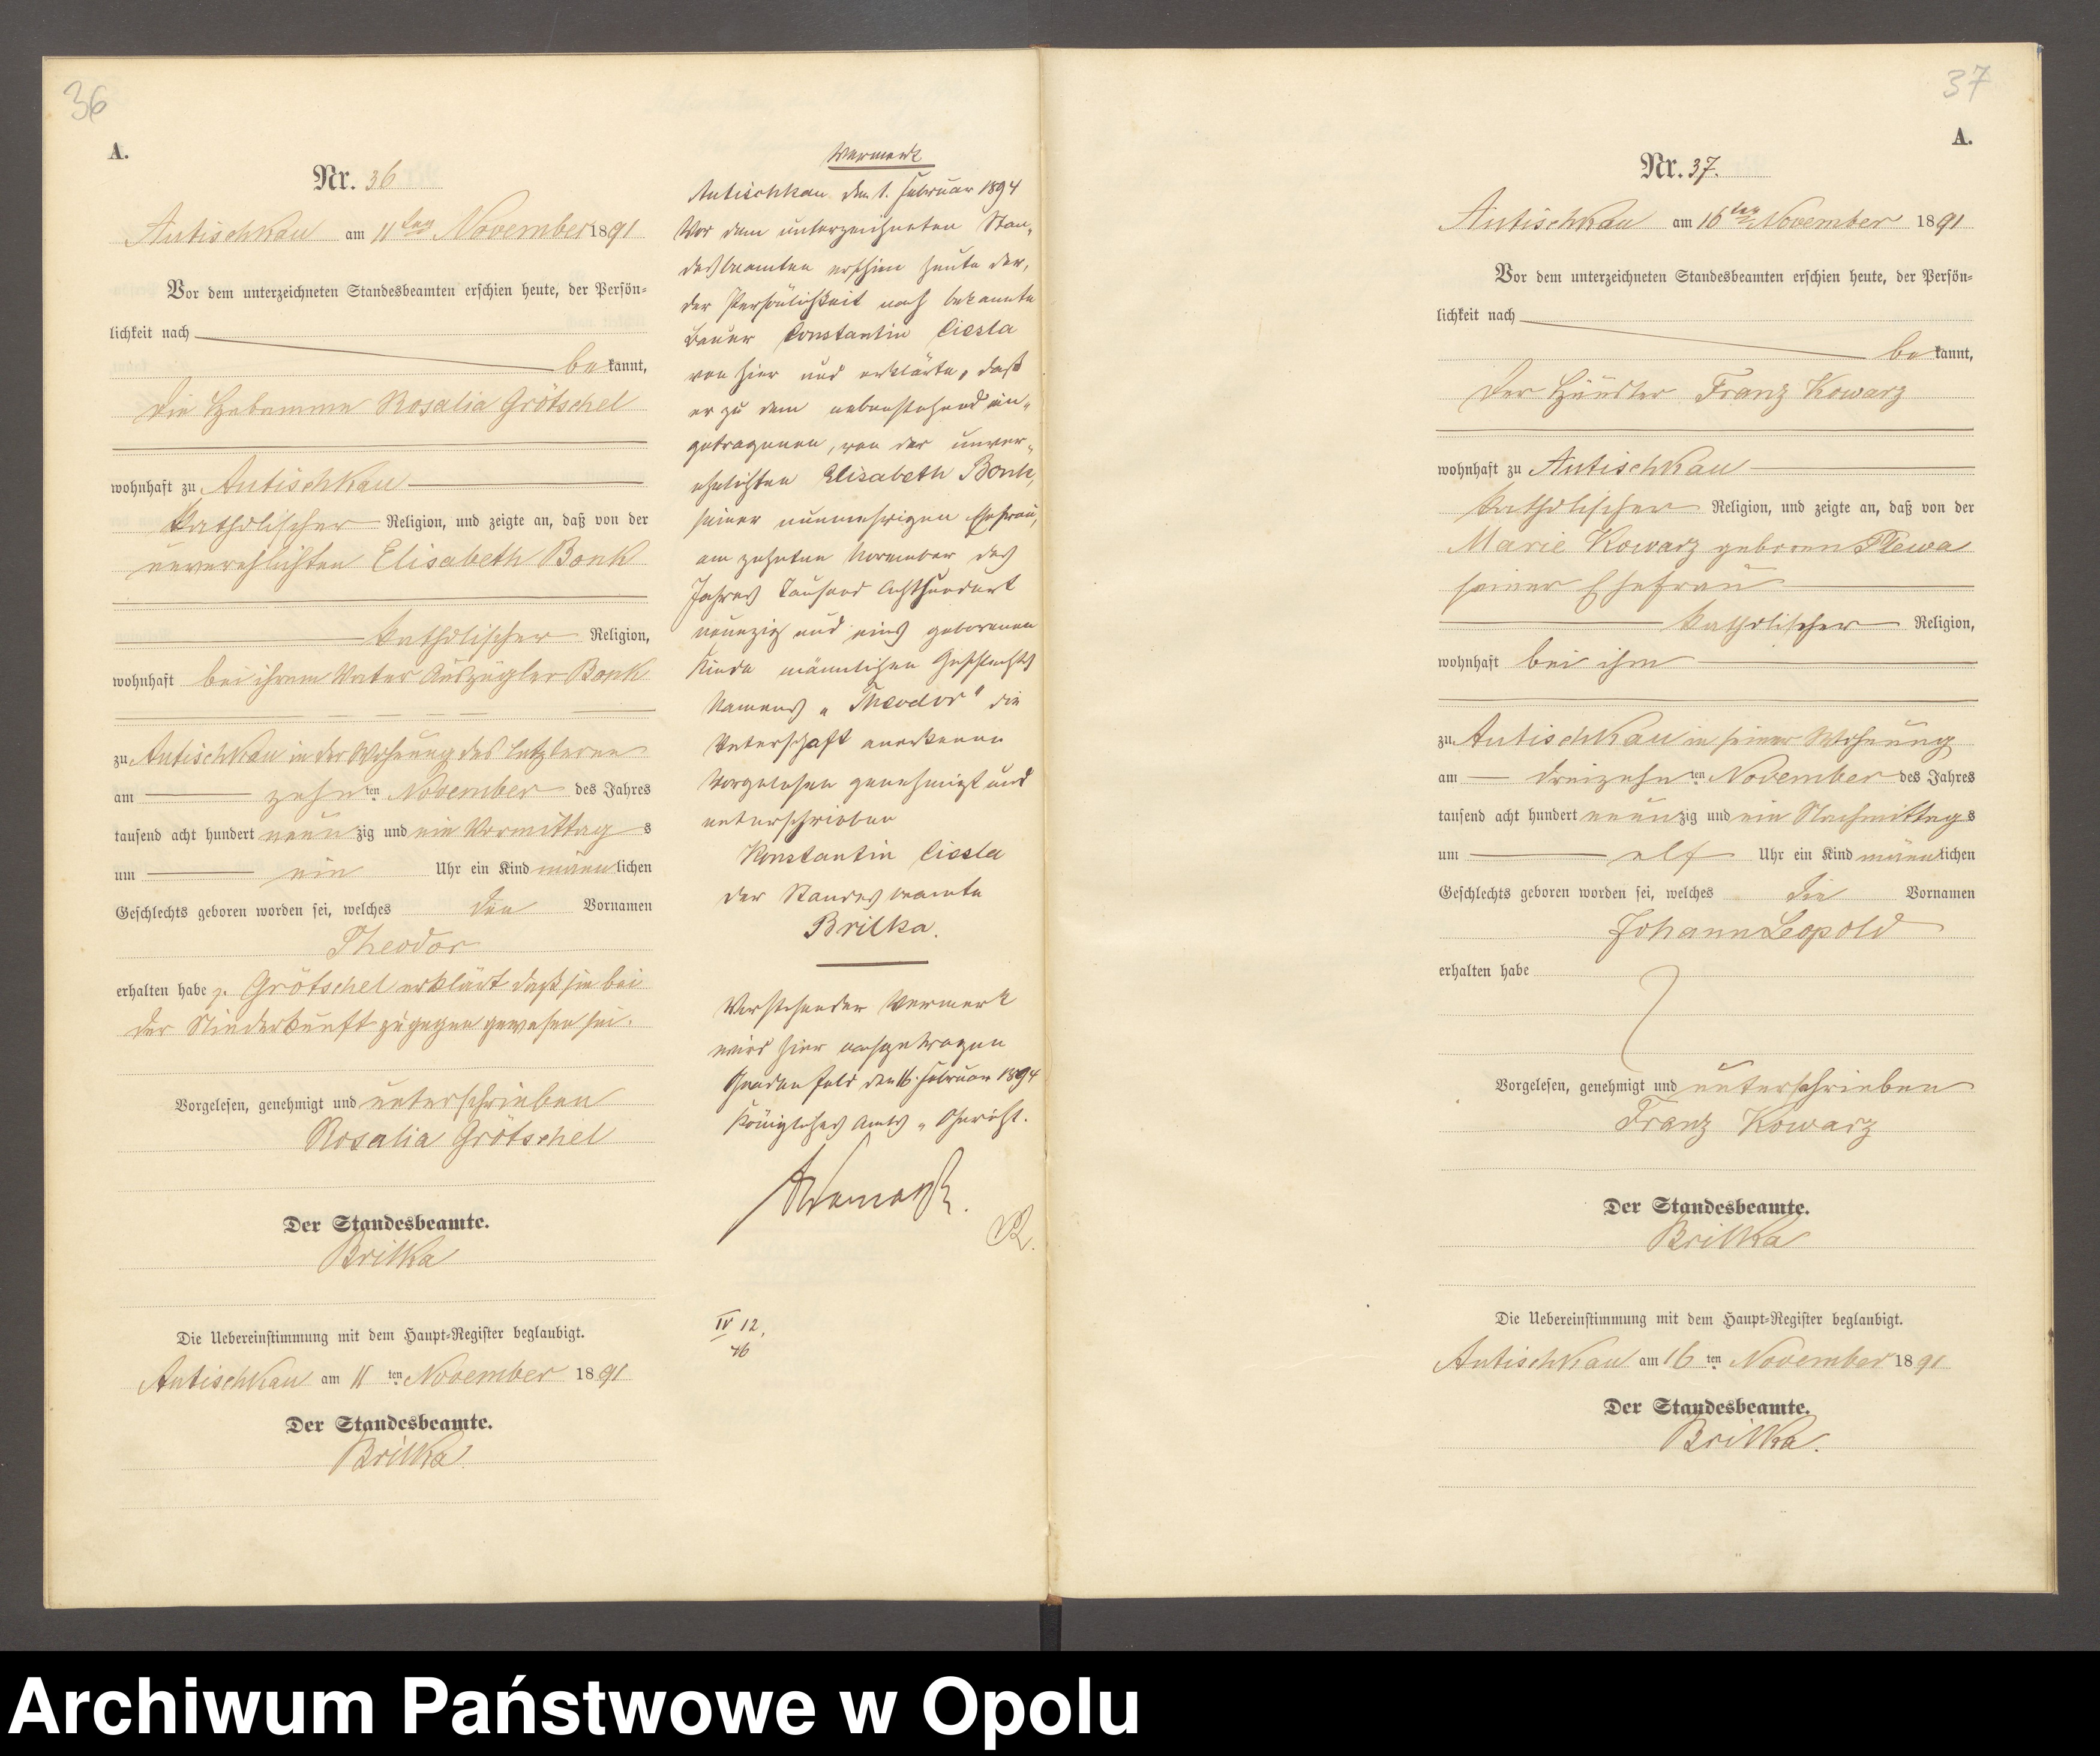 36
A.
Nr. 36
Autischkau am 11ten November 1891
Vor dem unterzeichneten Standesbeamten erschien heute, der Persön-
lichkeit nach
bekannt,
die Hebamme Rosalia Grötschel
wohnhaft zu Autischkau
katholischer Religion, und zeigte an, daß von der
unverehlichten Elisabeth Bonk
katholischer Religion,
wohnhaft bei ihrem Vater Auszügler Bonk
zu Autischkau in der Wohnung des letzteren
am zehnten November des Jahres
tausend acht hundert neunzig und ein Vormittags
um ein Uhr ein Kind männlichen
Geschlechts geboren worden sei, welches den Vornamen
Theodor
erhalten habe p. Grötschel erklärt daß sie bei
der Niederkunft zugegen gewesen sei.
Vorgelesen, genehmigt und unterschrieben
Rosalia Grötschel
Der Standesbeamte.
Brilka
Die Uebereinstimmung mit dem Haupt-Register beglaubigt.
Autischkau am 11ten November 1891
Der Standesbeamte.
Brilka
Vermerk
Autischkau den 1. Februar 1894
Vor dem unterzeichneten Stan-
desbeamten erschien heute der,
der Persönlichkeit nach bekannte
Bauer Constantin Ciesla
von hier und erklärte, daß
er zu dem nebenstehend ein-
getragenen, von der unver-
ehelichten Elisabeth Bonk,
seiner nunmehrigen Ehefrau,
am zehnten November des
Jahres Tausend Achthundert
neunzig und eins geborenen
Kinde männlichen Geschlechts
Namens „Theodor" die
Vaterschaft anerkenne
Vorgelesen genehmigt und
unterschrieben
Konstantin Ciesla
Der Standesbeamte
Brilka.
Vorstehender Vermerk
wird hier nachgetragen
Gnadenfeld den 16. Februar 1894
Königliches Amts-Gericht.
IV 12.
46
37
A.
Nr. 37.
Autischkau am 16ten November 1891
Vor dem unterzeichneten Standesbeamten erschien heute, der Persön-
lichkeit nach
bekannt,
der Häusler Franz Kowarz
wohnhaft zu Autischkau
katholischer Religion, und zeigte an, daß von der
Marie Kowarz geboren Plewa
seiner Ehefrau
katholischer Religion,
wohnhaft bei ihm
zu Autischkau in seiner Wohnung
am dreizehnten November des Jahres
tausend acht hundert neunzig und ein Nachmittags
um elf Uhr ein Kind männlichen
Geschlechts geboren worden sei, welches die Vornamen
Johann Leopold
erhalten habe
Vorgelesen, genehmigt und unterschrieben
Franz Kowarz
Der Standesbeamte.
Brilka
Die Uebereinstimmung mit dem Haupt-Register beglaubigt.
Autischkau am 16ten November 1891
Der Standesbeamte.
Brilka.
Archiwum Państwowe w Opolu